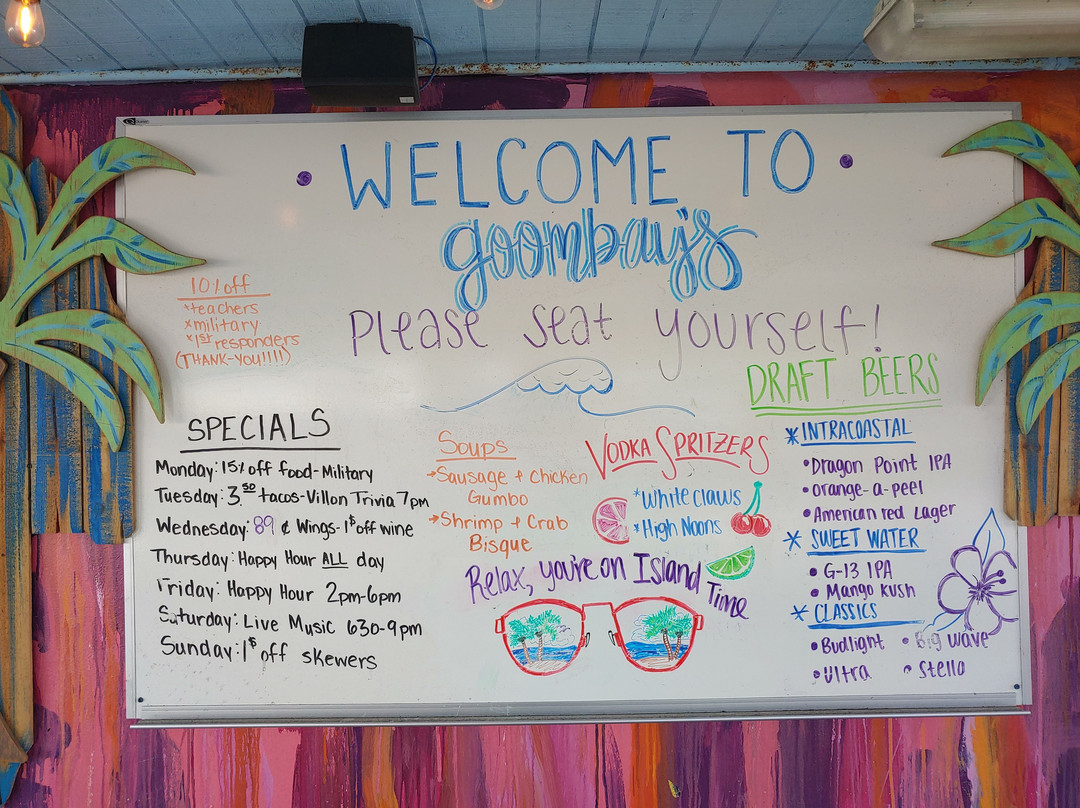 • WELCOME TO •
goombay's
Please seat yourself!
10% off
*teachers
*military
*1st responders
(THANK-YOU!!!!)
SPECIALS
Monday: 15% off food-Military
Tuesday: 3.50 tacos-Villon Trivia 7pm
Wednesday: 89 ¢ Wings-1$ off wine
Thursday: Happy Hour ALL day
Friday: Happy Hour 2pm-6pm
Saturday: Live Music 630-9pm
Sunday: 1$ off skewers
Soups
→Sausage + Chicken
Gumbo
→Shrimp + Crab
Bisque
VODKA SPRITZERS
*White claws
*High Noons
Relax, you're on Island Time
DRAFT BEERS
* INTRACOASTAL
• Dragon Point IPA
• orange-a-peel
• American red Lager
* SWEET WATER
• G-13 IPA
• Mango kush
* CLASSICS
• Budlight • Big wave
• Ultra • Stella